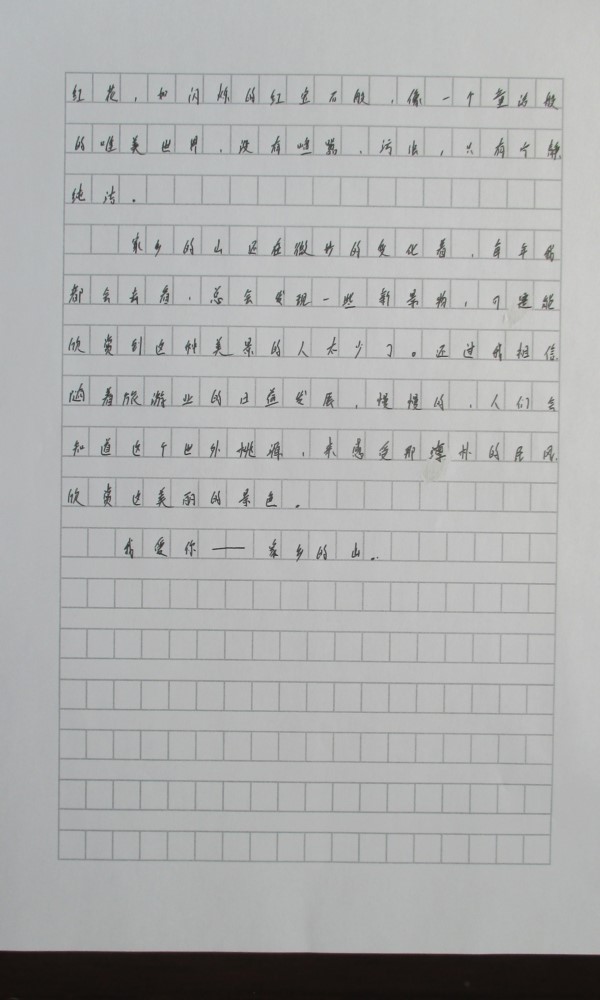 红花，如闪烁的红宝石般，像一个童话般
的唯美世界，没有喧嚣，污浊，只有宁静
纯洁。
家乡的山还在微妙的变化着，每年我
都会去看，总会发现一些新景物，可是能
欣赏到这种美景的人太少了。不过我相信
随着旅游业的日益发展，慢慢的，人们会
知道这个世外桃源，来感受那淳朴的民风
欣赏这美丽的景色。
我爱你——家乡的山。